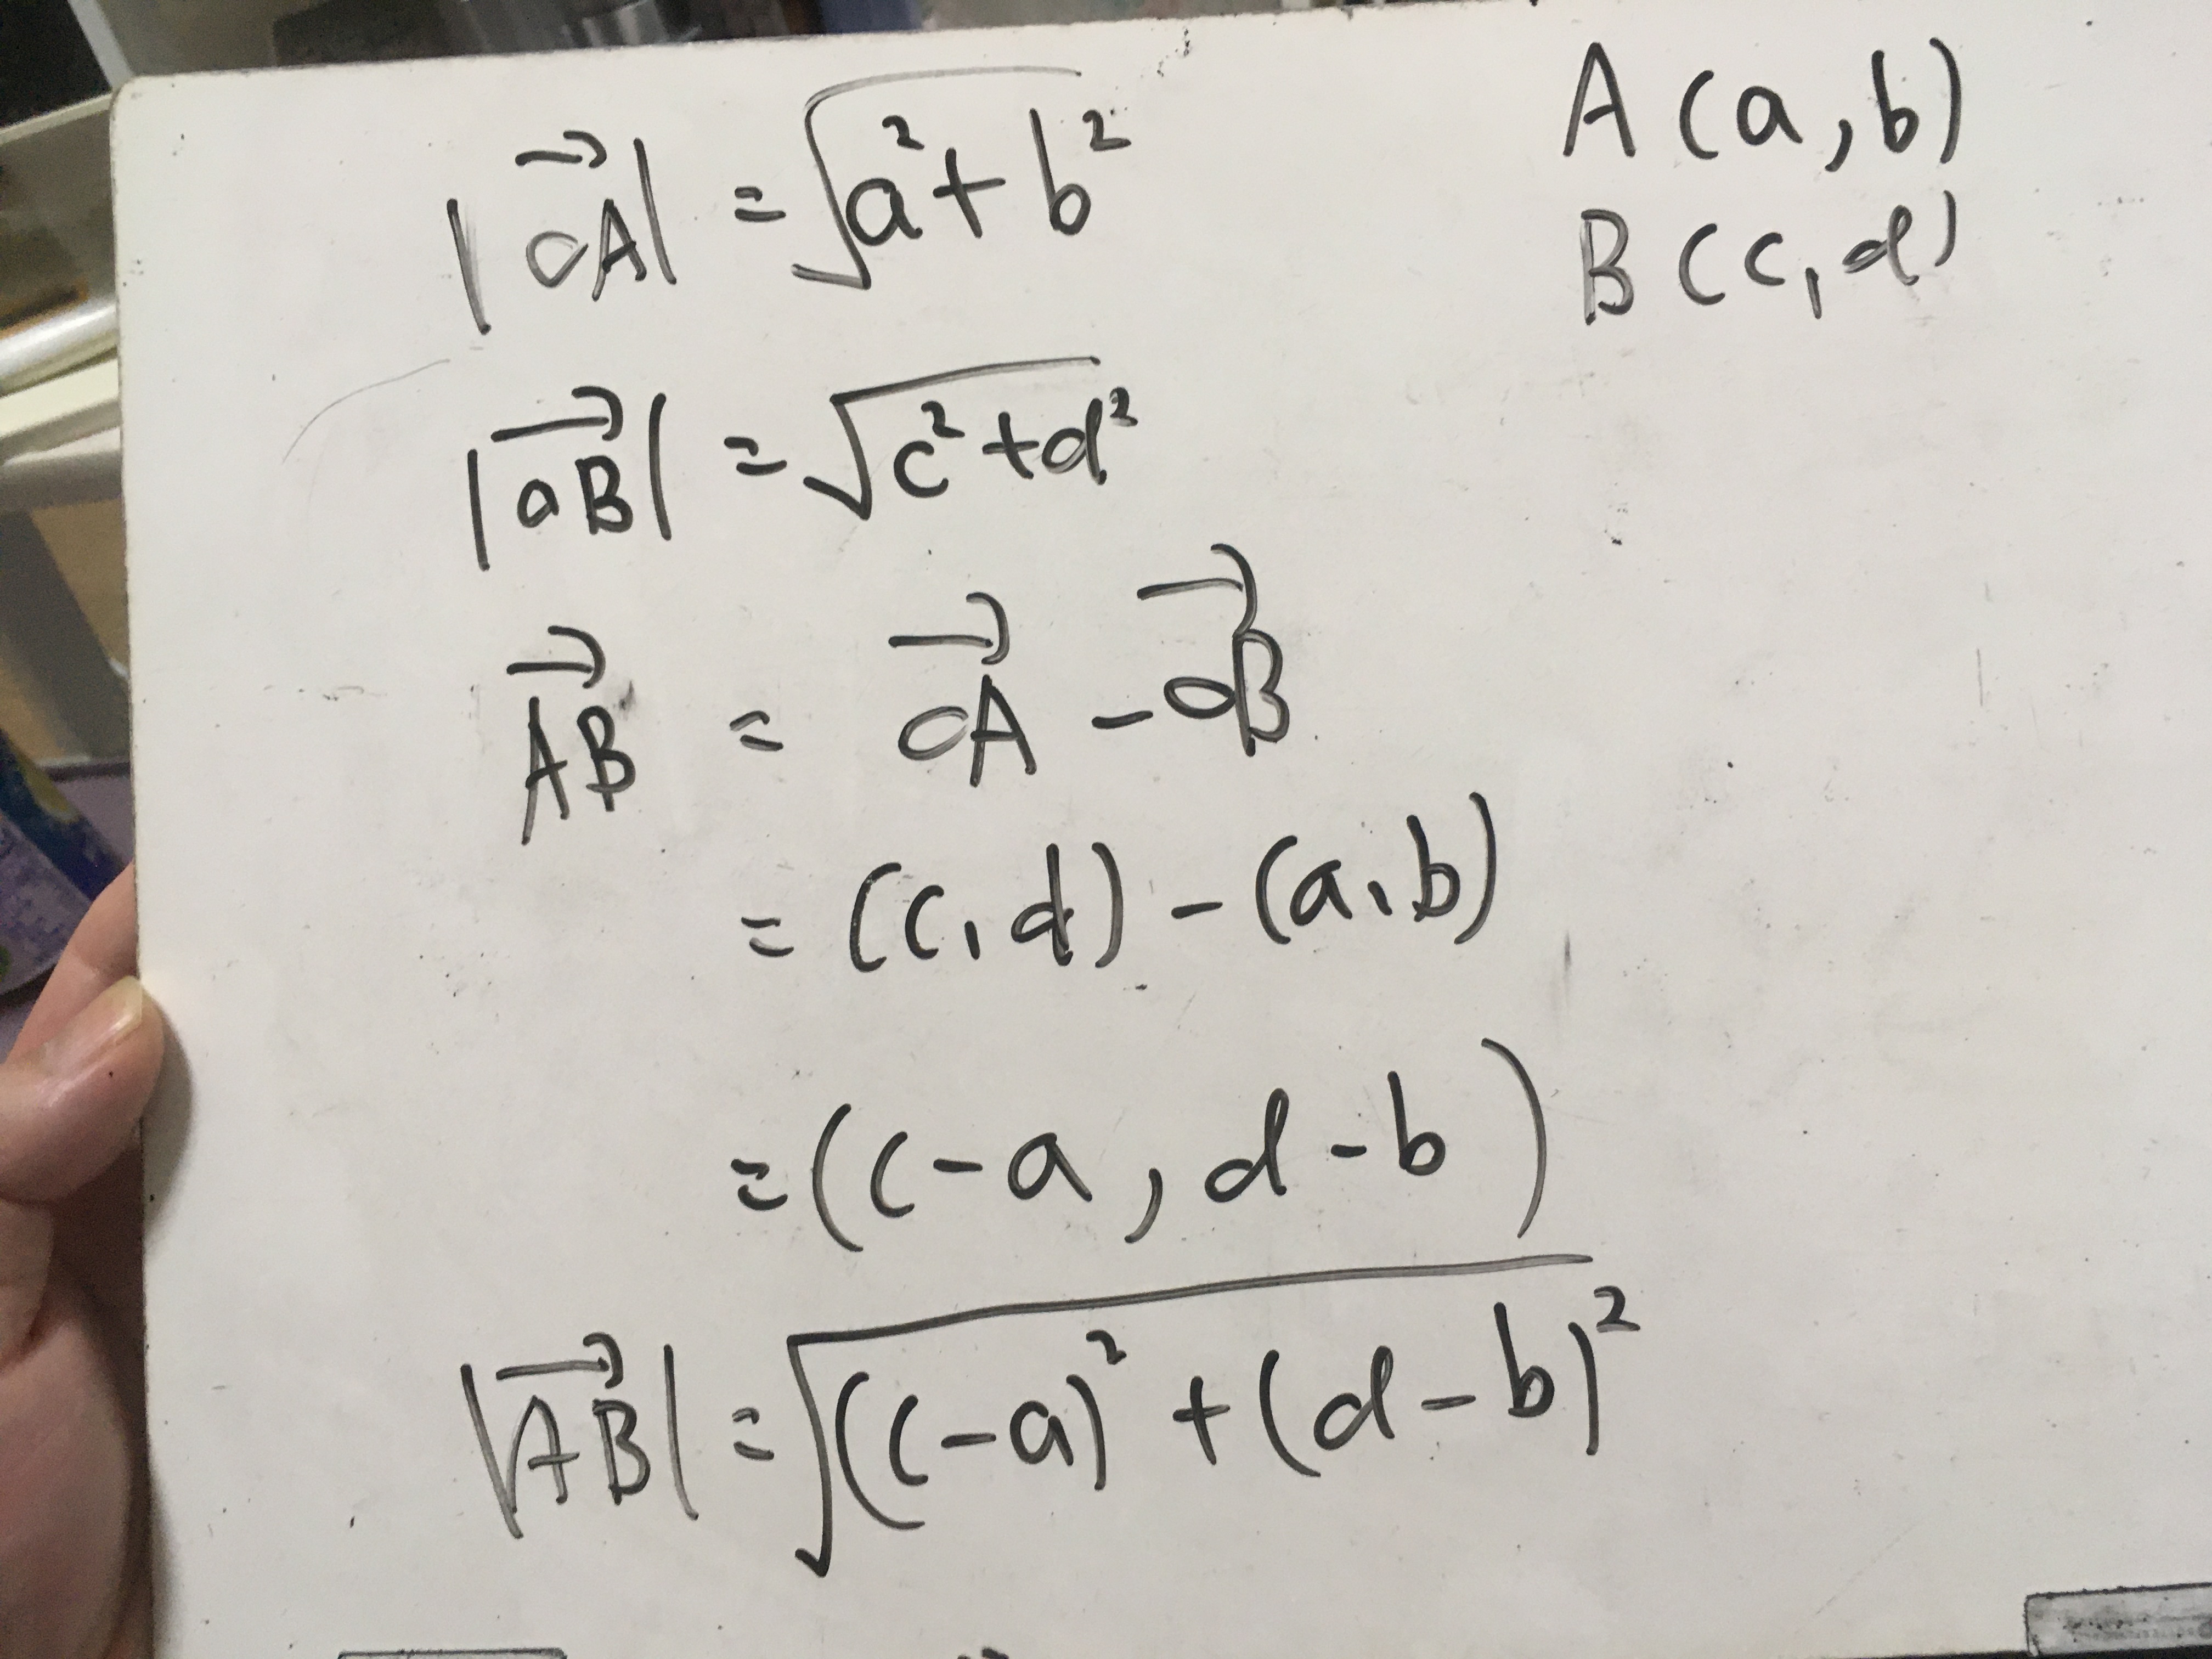 A(a,b)
B(c,d)
|OA⃗| = √(a²+b²)
|OB⃗| = √(c²+d²)
AB⃗ = OA⃗ - OB⃗
= (c,d) - (a,b)
= (c-a, d-b)
|AB⃗| = √((c-a)² + (d-b)²)